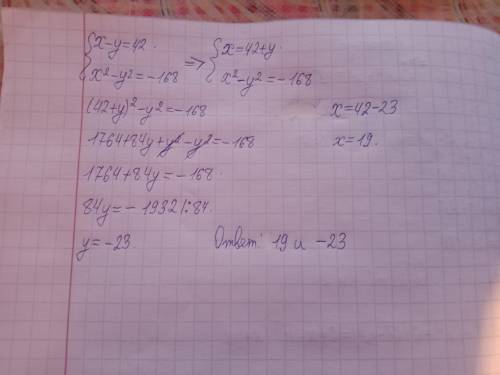 {x-y=42. => {x=42+y.
x²-y²=-168 x²-y²=-168
(42+y)²-y²=-168 x=42-23
1764+84y+y²-y²=-168 x=19.
1764+84y=-168.
84y=-1932|:84.
y=-23. Ответ: 19 и -23